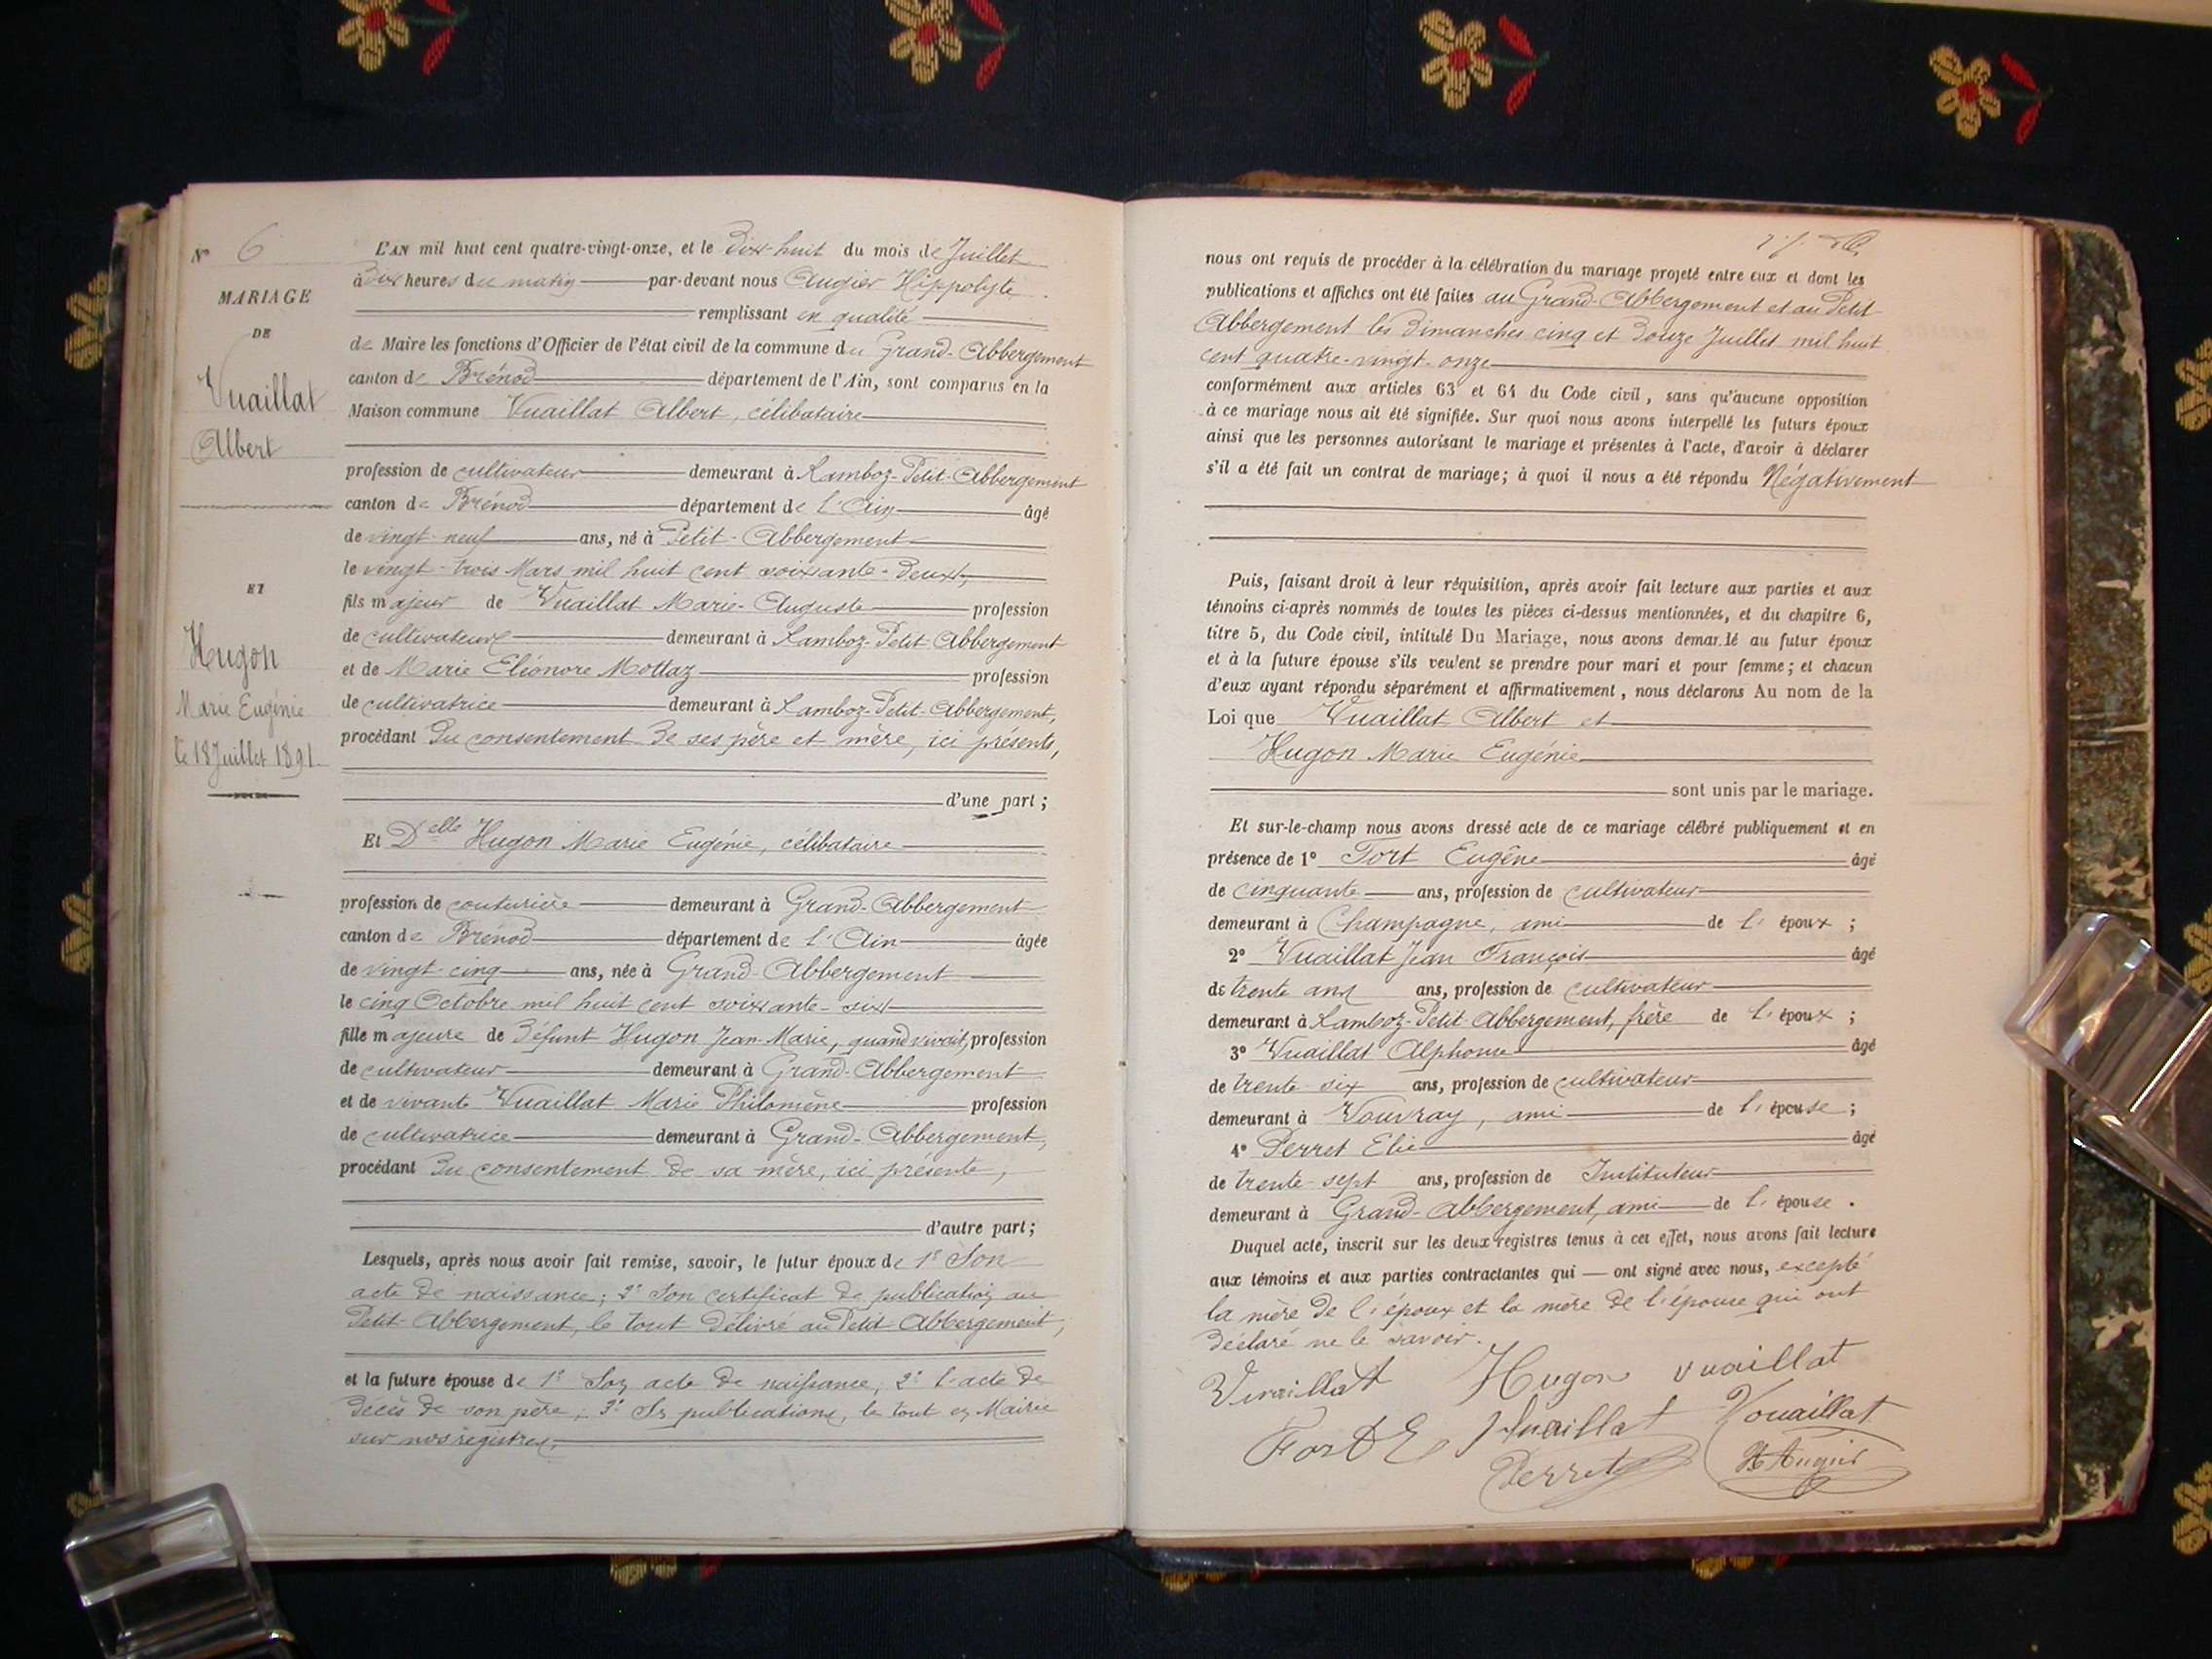 N° 6
MARIAGE
DE
Vuaillat
Albert
ET
Hugon
Marie Eugénie
le 18 Juillet 1891.
L'AN mil huit cent quatre-vingt-onze, et le Dix-huit du mois de Juillet
à Dix heures du matin par-devant nous Augier Hippolyte
remplissant en qualité
de Maire les fonctions d'Officier de l'état civil de la commune du Grand-Abbergement
canton de Brénod département de l'Ain, sont comparus en la
Maison commune Vuaillat Albert, célibataire
profession de cultivateur demeurant à Lamboz-Petit-Abbergement
canton de Brénod département de l'Ain âgé
de vingt-neuf ans, né à Petit-Abbergement
le vingt-trois Mars mil huit cent soixante-deux,
fils majeur de Vuaillat Marie-Auguste profession
de cultivateur demeurant à Lamboz-Petit-Abbergement
et de Marie Eléonore Mottaz profession
de cultivatrice demeurant à Lamboz-Petit-Abbergement,
procédant Du consentement De ses père et mère, ici présents,
d'une part ;
Et Delle Hugon Marie Eugénie, célibataire
profession de couturière demeurant à Grand-Abbergement
canton de Brénod département de l'Ain âgée
de vingt-cinq ans, née à Grand-Abbergement
le cinq Octobre mil huit cent soixante-six
fille majeure de Défunt Hugon Jean-Marie, quand vivait, profession
de cultivateur demeurant à Grand-Abbergement
et de vivante Vuaillat Marie Philomène profession
de cultivatrice demeurant à Grand-Abbergement,
procédant Du consentement de sa mère, ici présente,
d'autre part ;
Lesquels, après nous avoir fait remise, savoir, le futur époux de 1° Son
acte de naissance; 2° Son certificat de publication au
Petit-Abbergement, le tout Délivré au Petit-Abbergement;
et la future épouse de 1° Son acte de naissance, 2° l'acte de
Décès de son père; 3° Ses publications, le tout en Mairie
sur nos registres.
nous ont requis de procéder à la célébration du mariage projeté entre eux et dont les
publications et affiches ont été faites au Grand-Abbergement et au Petit
Abbergement les Dimanches cinq et Douze Juillet mil huit
cent quatre-vingt-onze
conformément aux articles 63 et 64 du Code civil, sans qu'aucune opposition
à ce mariage nous ait été signifiée. Sur quoi nous avons interpellé les futurs époux
ainsi que les personnes autorisant le mariage et présentes à l'acte, d'avoir à déclarer
s'il a été fait un contrat de mariage; à quoi il nous a été répondu Négativement
Puis, faisant droit à leur réquisition, après avoir fait lecture aux parties et aux
témoins ci-après nommés de toutes les pièces ci-dessus mentionnées, et du chapitre 6,
titre 5, du Code civil, intitulé Du Mariage, nous avons demandé au futur époux
et à la future épouse s'ils veulent se prendre pour mari et pour femme; et chacun
d'eux ayant répondu séparément et affirmativement, nous déclarons Au nom de la
Loi que Vuaillat Albert et
Hugon Marie Eugénie
sont unis par le mariage.
Et sur-le-champ nous avons dressé acte de ce mariage célébré publiquement et en
présence de 1° Fort Eugène âgé
de cinquante ans, profession de cultivateur
demeurant à Champagne, ami de l'époux ;
2° Vuaillat Jean François âgé
de trente ans ans, profession de cultivateur
demeurant à Lamboz-Petit-Abbergement, frère de l'époux ;
3° Vuaillat Alphonse âgé
de trente-six ans, profession de cultivateur
demeurant à Vouvray, ami de l'épouse ;
4° Perret Elie âgé
de trente-sept ans, profession de Instituteur
demeurant à Grand-Abbergement, ami de l'épouse.
Duquel acte, inscrit sur les deux registres tenus à cet effet, nous avons fait lecture
aux témoins et aux parties contractantes qui — ont signé avec nous, excepté
la mère De l'époux et la mère De l'épouse qui ont
Déclaré ne le savoir.
Vuaillat Hugon vuaillat
Fort E Vuaillat Vouaillat
Perret H Augier